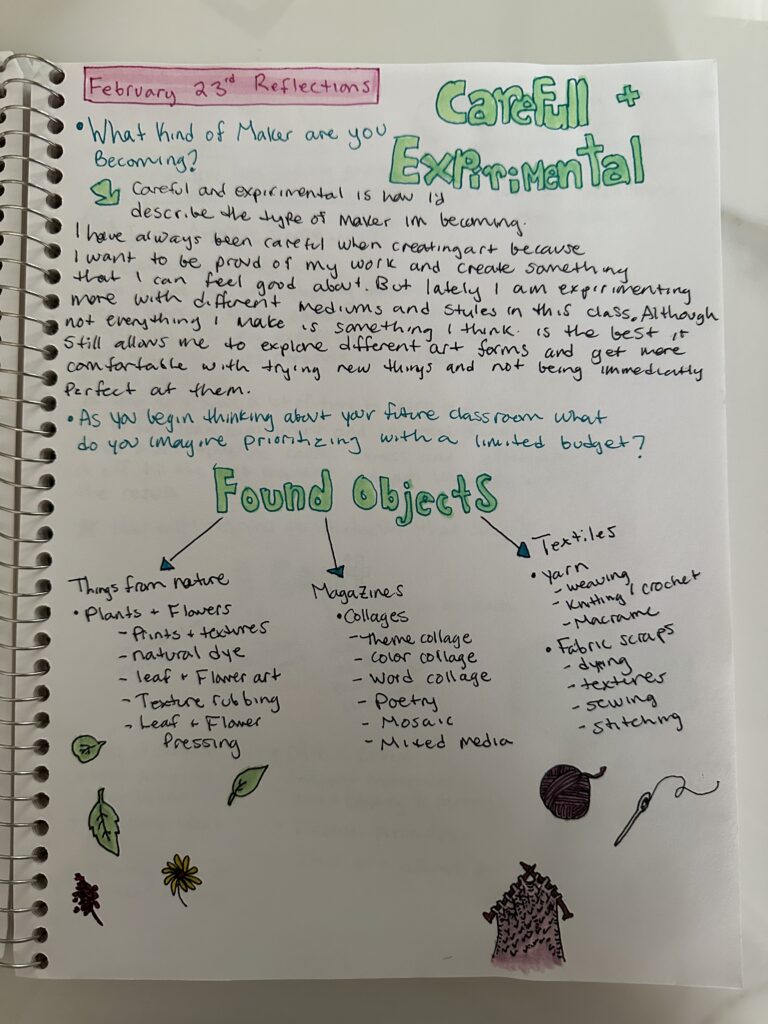 February 23rd Reflections
Carefull +
Expirimental
• What Kind of Maker are you
Becoming?
Careful and expirimental is how i'd
describe the type of maker im becoming.
I have always been careful when creating art because
I want to be proud of my work and create something
that I can feel good about. But lately I am expirimenting
more with different mediums and styles in this class. Although
not everything I make is something I think is the best it
still allows me to explore different art forms and get more
comfortable with trying new things and not being immediatly
perfect at them.
• As you begin thinking about your future classroom what
do you imagine prioritizing with a limited budget?
Found Objects
Things from nature
• Plants + Flowers
- Prints + textures
- natural dye
- leaf + Flower art
- Texture rubbing
- Leaf + Flower
Pressing
Magazines
• Collages
- Theme collage
- Color collage
- Word collage
- Poetry
- Mosaic
- Mixed media
Textiles
• Yarn
- weaving
- Knitting / crochet
- Macrame
• Fabric scraps
- dying
- textures
- sewing
- stitching